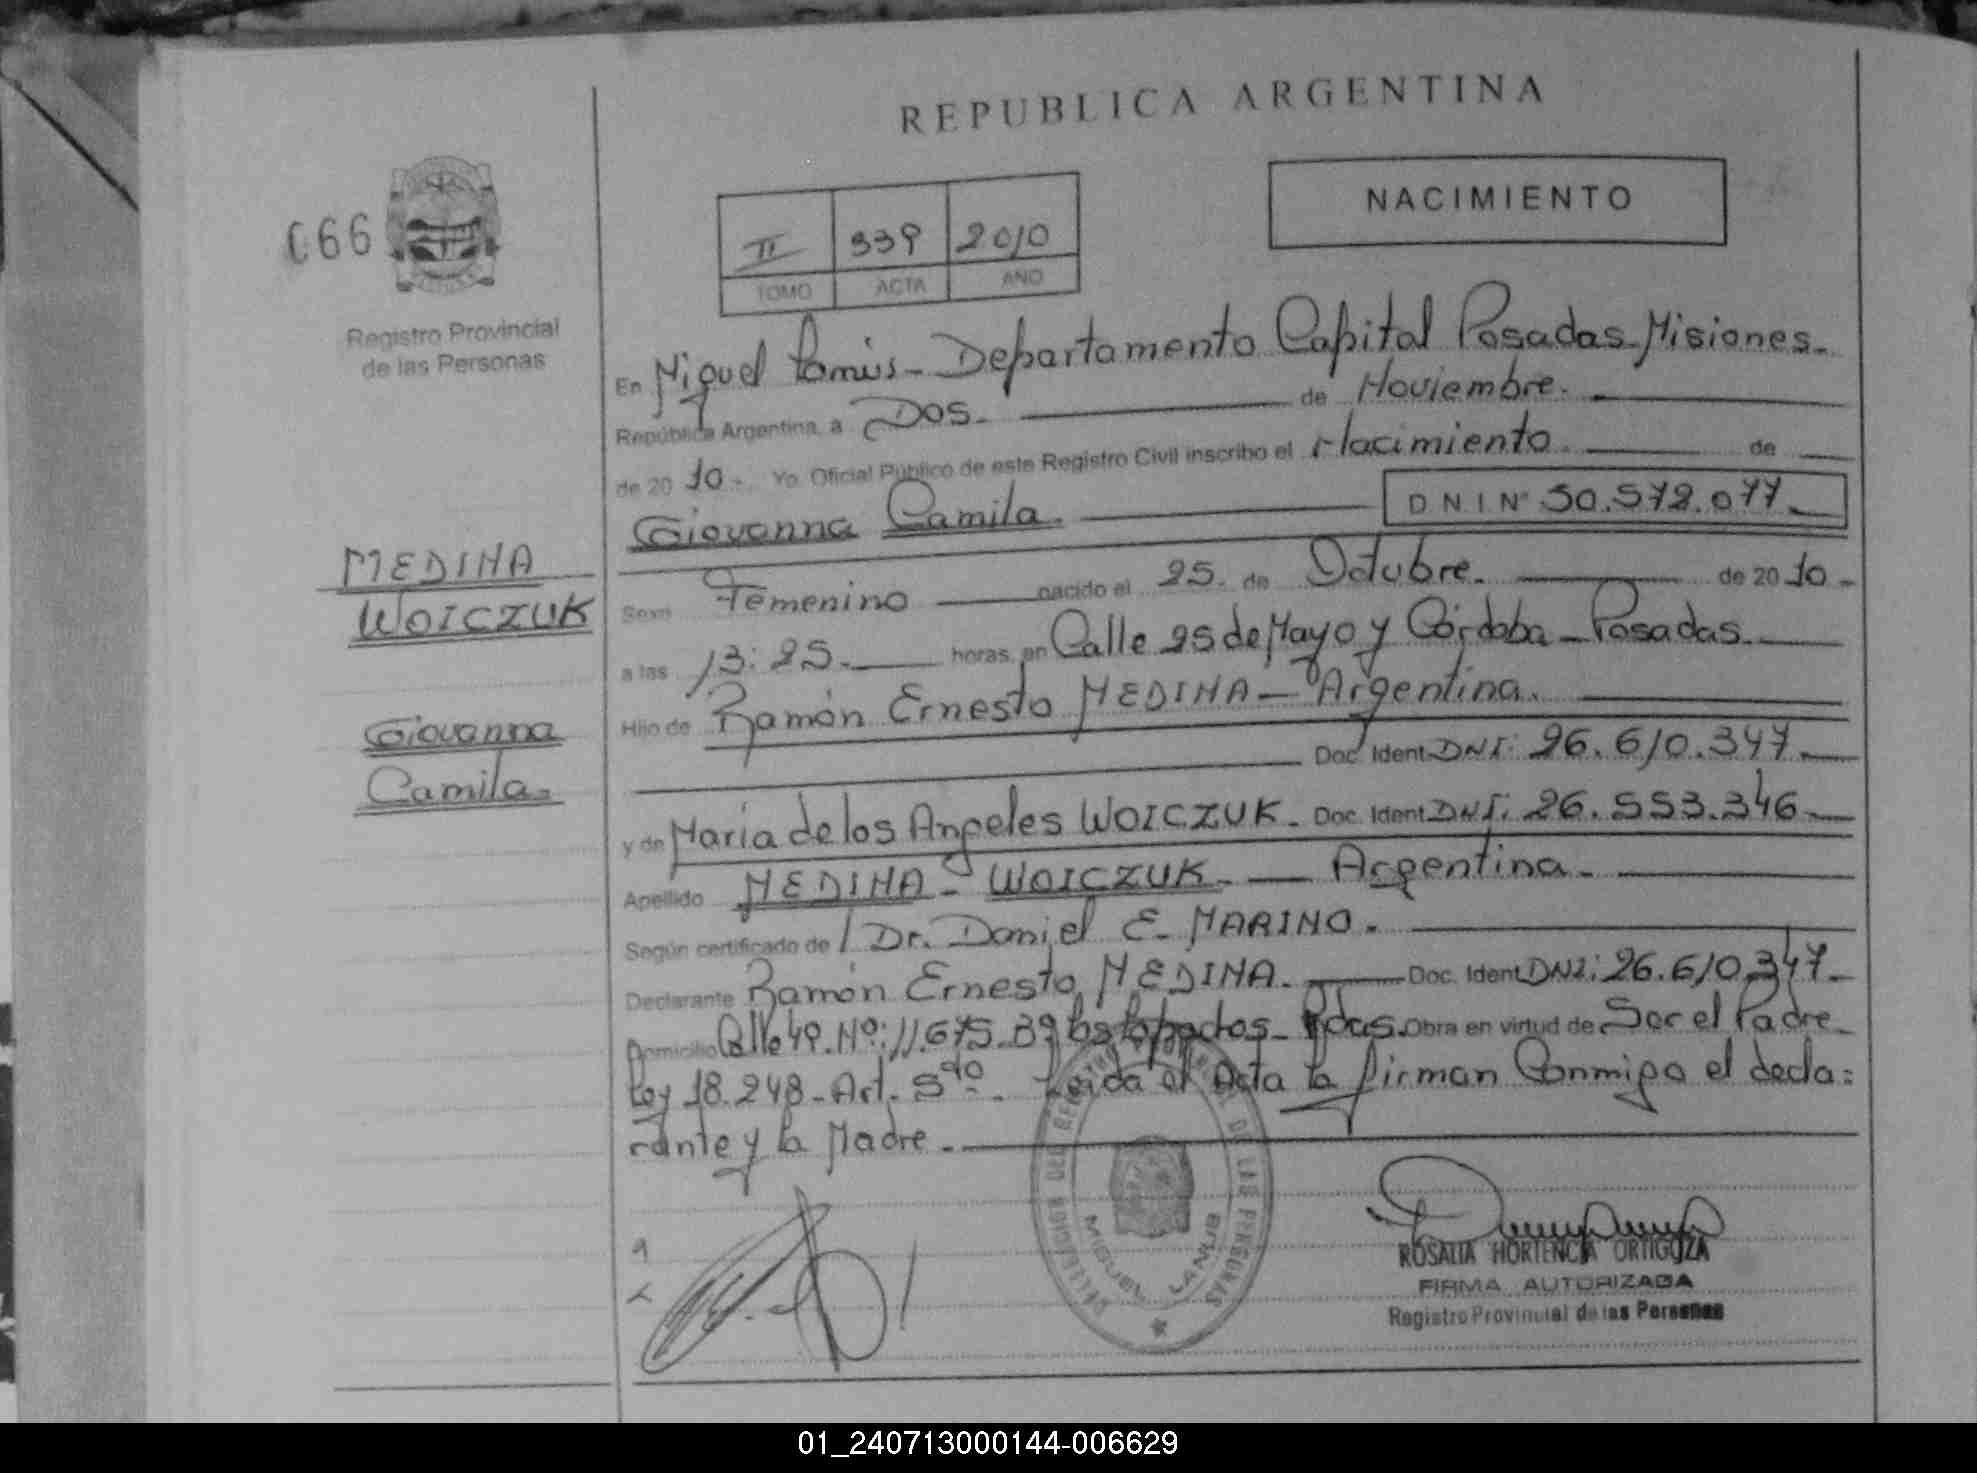 REPUBLICA ARGENTINA
NACIMIENTO
066
II 339 2010
TOMO ACTA AÑO
Registro Provincial
de las Personas
En Miguel Lanús - Departamento Capital Posadas - Misiones -
República Argentina, a Dos - de Noviembre -
de 20 10 - Yo Oficial Público de este Registro Civil inscribo el Nacimiento de
Giovanna Camila - D N I Nº 50.572.077 -
MEDINA
WOICZUK
Giovanna
Camila -
Sexo Femenino nacido el 25 - de Octubre - de 20 10 -
a las 13:25 - horas, en Calle 25 de Mayo y Córdoba - Posadas -
Hijo de Ramón Ernesto MEDINA - Argentina -
Doc. Ident DNI: 26.610.347 -
y de María de los Angeles WOICZUK - Doc. Ident DNI: 26.553.346 -
Apellido MEDINA - WOICZUK - Argentina -
Según certificado de / Dr. Daniel E. MARINO -
Declarante Ramón Ernesto MEDINA - Doc. Ident DNI: 26.610.347 -
Domicilio Calle 49 - Nº: 11.675 - Bº Los Lapachos - Pdas. Obra en virtud de Ser el Padre -
Ley 18.248 - Art. 5to - Leída el Acta la firman Conmigo el decla=
rante y la Madre -
DELEGACION DEL REGISTRO PROVINCIAL DE LAS PERSONAS
MIGUEL LANUS
ROSALIA HORTENCIA ORTIGOZA
FIRMA AUTORIZADA
Registro Provincial de las Personas
01_240713000144-006629